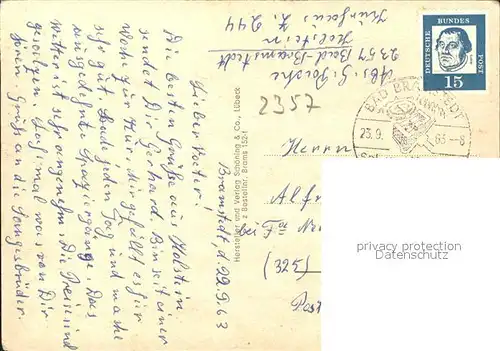 Bramstedt d 22.9.63
Lieber Vorter!
Die besten Grüße aus Holstein
sendet Dir Gerhard. Bin seit einer
Woche zur Kur, hier gefällt es mir
sehr gut. Bade jeden Tag und mache
ausgedehnte Spaziergänge. Das
Wetter ist sehr angenehm. Die Preise sind
gesalzen. Laß mal was von Dir
hören. Gruß an die Sangesbrüder.
Abs. G.
2357 Bad-Bramstedt
Holstein
Kurhaus Z. 244
2357
Hersteller und Verlag Schöning & Co., Lübeck
Bestellnr. Brams 152 f
DEUTSCHE BUNDES POST
15
BAD BRAMSTEDT
23.9. 63-8
Herrn
Alf
bei
(325)
Post
privacy protection
Datenschutz